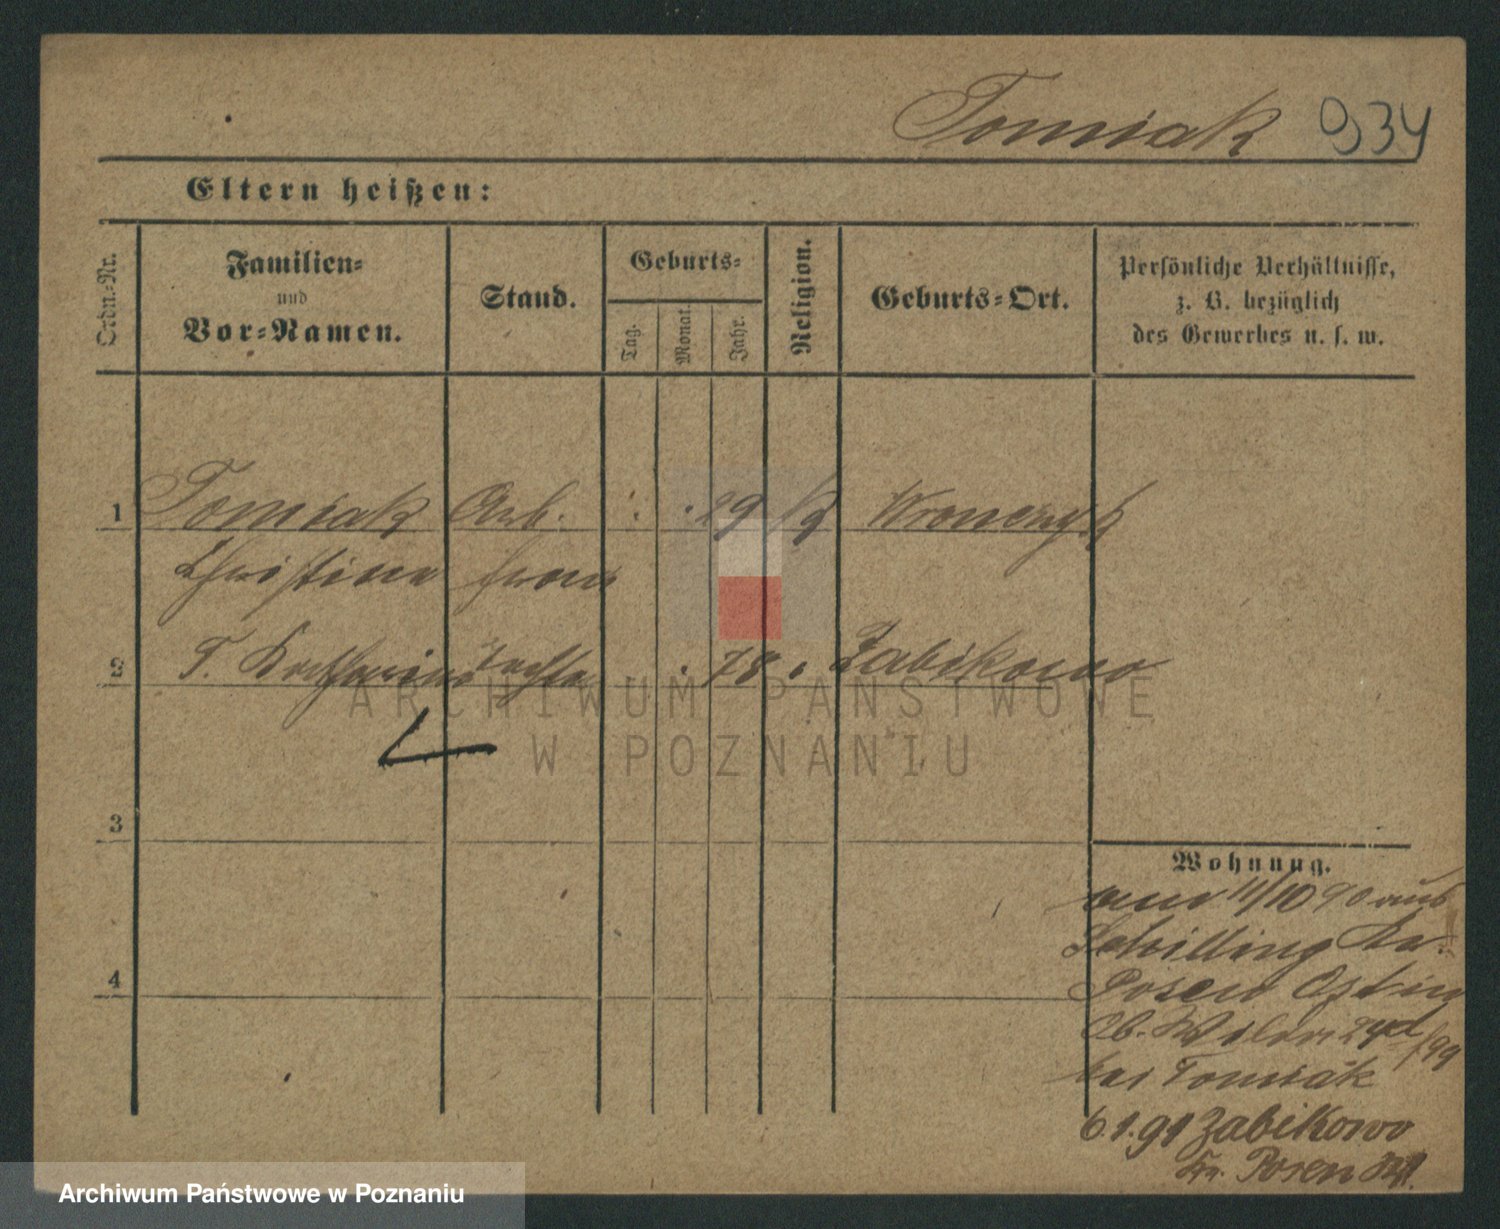 Tomiak 934
Eltern heißen:
Ordn.-Nr.
Familien-
und
Vor-Namen.
Stand.
Geburts-
Tag.
Monat.
Jahr.
Religion.
Geburts-Ort.
Persönliche Verhältnisse,
z. B. bezüglich
des Gewerbes u. s. w.
1 Tomiak Arb. 29 k Wronczyk
Christine frau
2 T. Katharina Tochter 78 Zabikowo
3
4
Wohnung.
11/10 90 aus
Schilling Kr.
Posen Ost
Ob. Wilda 24
bei Tomiak
6.1.91 Zabikowo
Kr. Posen
ARCHIWUM PAŃSTWOWE
W POZNANIU
Archiwum Państwowe w Poznaniu